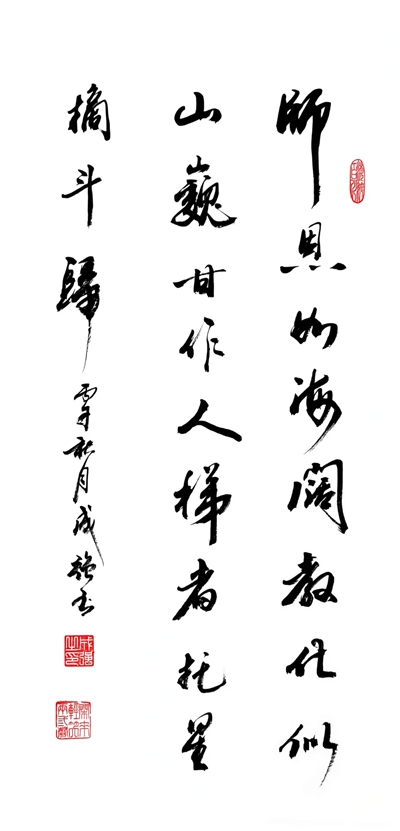 師恩如海阔教化似
山巍甘作人梯者托星
摘斗歸
丙午秋月成强书